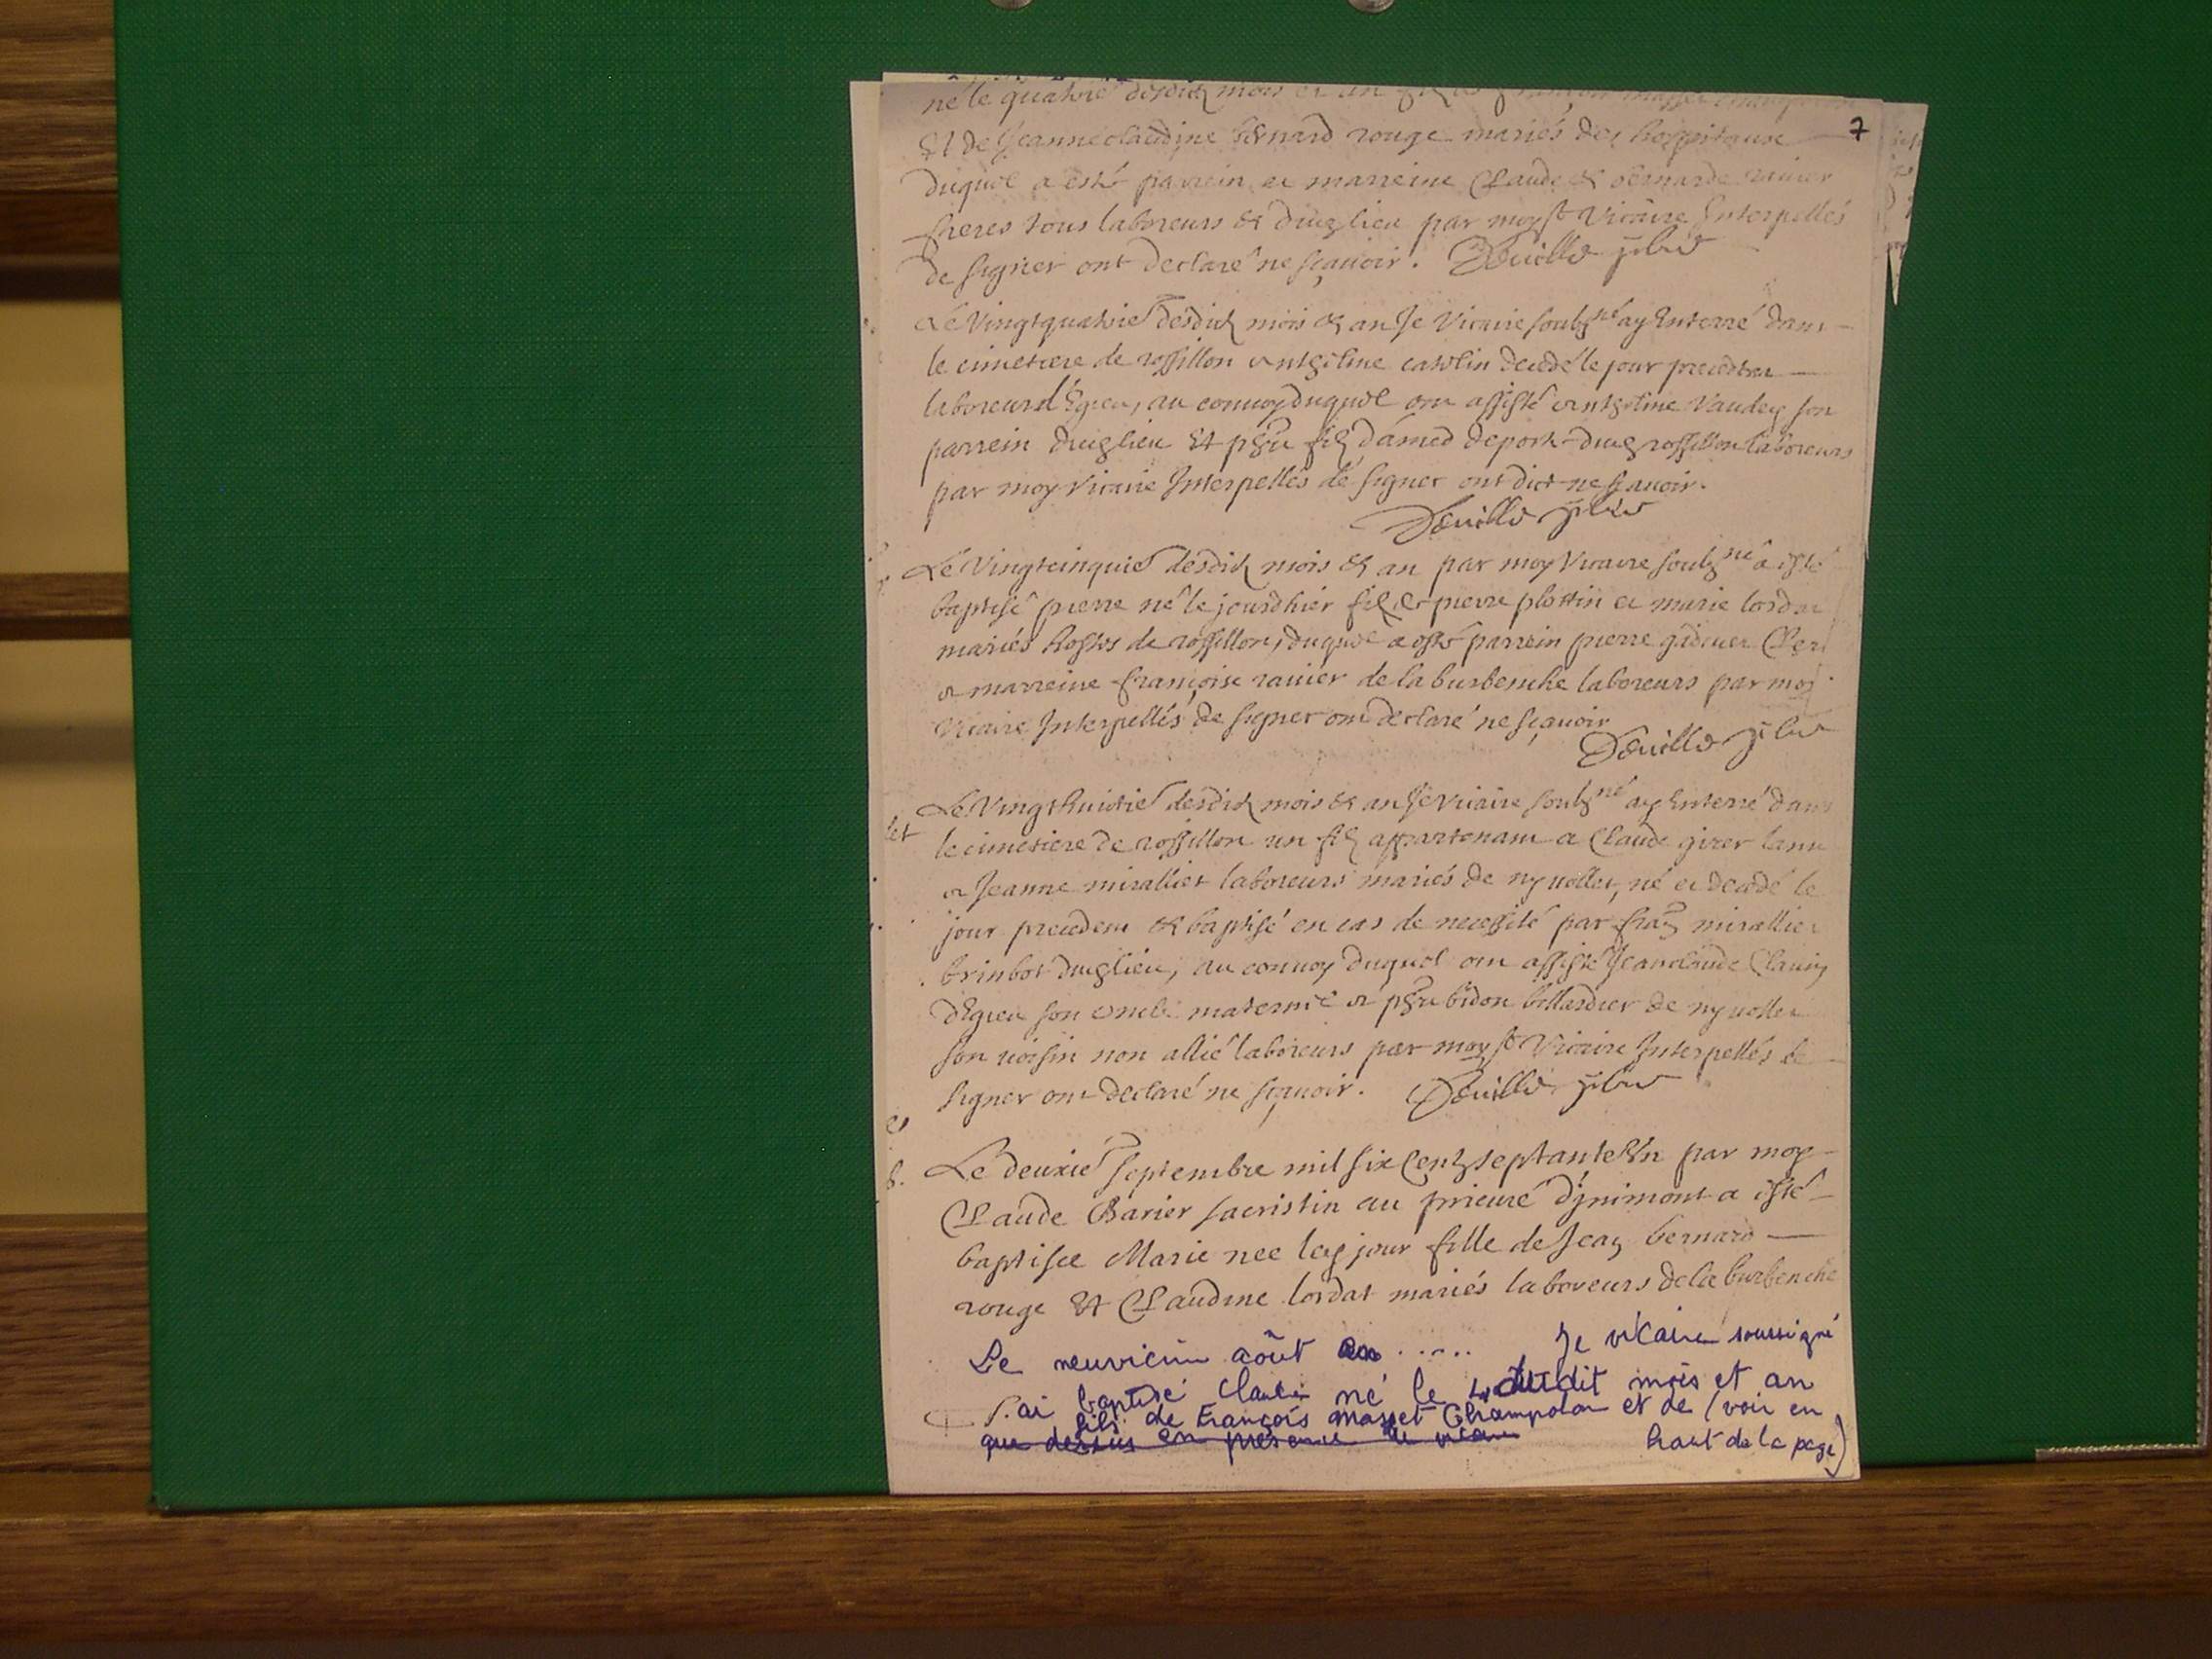 né le quatrie desdictz mois et an filz de
7
Et de Jeanne claudine bernard rouge mariés des hospitaux
duquel a esté parrein et marreine Claude & bernarde ravier
freres tous laboreurs & dudictlieu par moy st Vicaire Interpellés
de signer ont declaré ne sçavoir. Deville
Le Vingtquatrie desdictz mois & an Je Vicaire soubzné ay Enterré dans
le cimetiere de rossillon anthelme catelin decedé le jour precedent
laboreur d'Egieu, au convoy duquel ont assisté anthelme Vaudey son
parrein dudictlieu Et filz d'amed deport dudict rossillon laboreurs
par moy Vicaire Interpellés de signer ont dict ne sçavoir.
Deville
Le Vingtcinquie desdictz mois & an par moy Vicaire soubzné a esté
baptisé pierre né le jourdhier filz de pierre plottin et marie lordat
mariés hostes de rossillon, duquel a esté parrein pierre
& marreine françoise ravier de la burbenche laboreurs par moy
Vicaire Interpellés de signer ont declaré ne sçavoir
Deville
Le Vingthuictie desdictz mois & an Je Vicaire soubzné ay Enterré dans
let
le cimetiere de rossillon un filz appartenant a Claude girer
& Jeanne mirallier laboreurs mariés de nyvollet, né et decedé le
jour precedent & baptisé en cas de necessité par mirallier
brinbot dudictlieu, au convoy duquel ont assisté Jeanclaude
d'Egieu son oncle maternel & bidon billardier de nyvollet
son voisin non allié laboreurs par moy st Vicaire Interpellés de
signer ont declaré ne sçavoir. Deville
b. Le deuxie septembre mil six Centz septanteEUn par moy
Claude Barier sacristin au prieuré d'jnimont a esté
baptisee Marie nee le jour fille de Jean bernard
rouge Et Claudine lordat mariés laboreurs de la burbenche
Le neuvième août en ..... Je vicaire soussigné
J'ai baptisé Claude né le 4 dudit mois et an
fils de François Masset Champolon et de (voir en
que dessus en presence haut de la page)